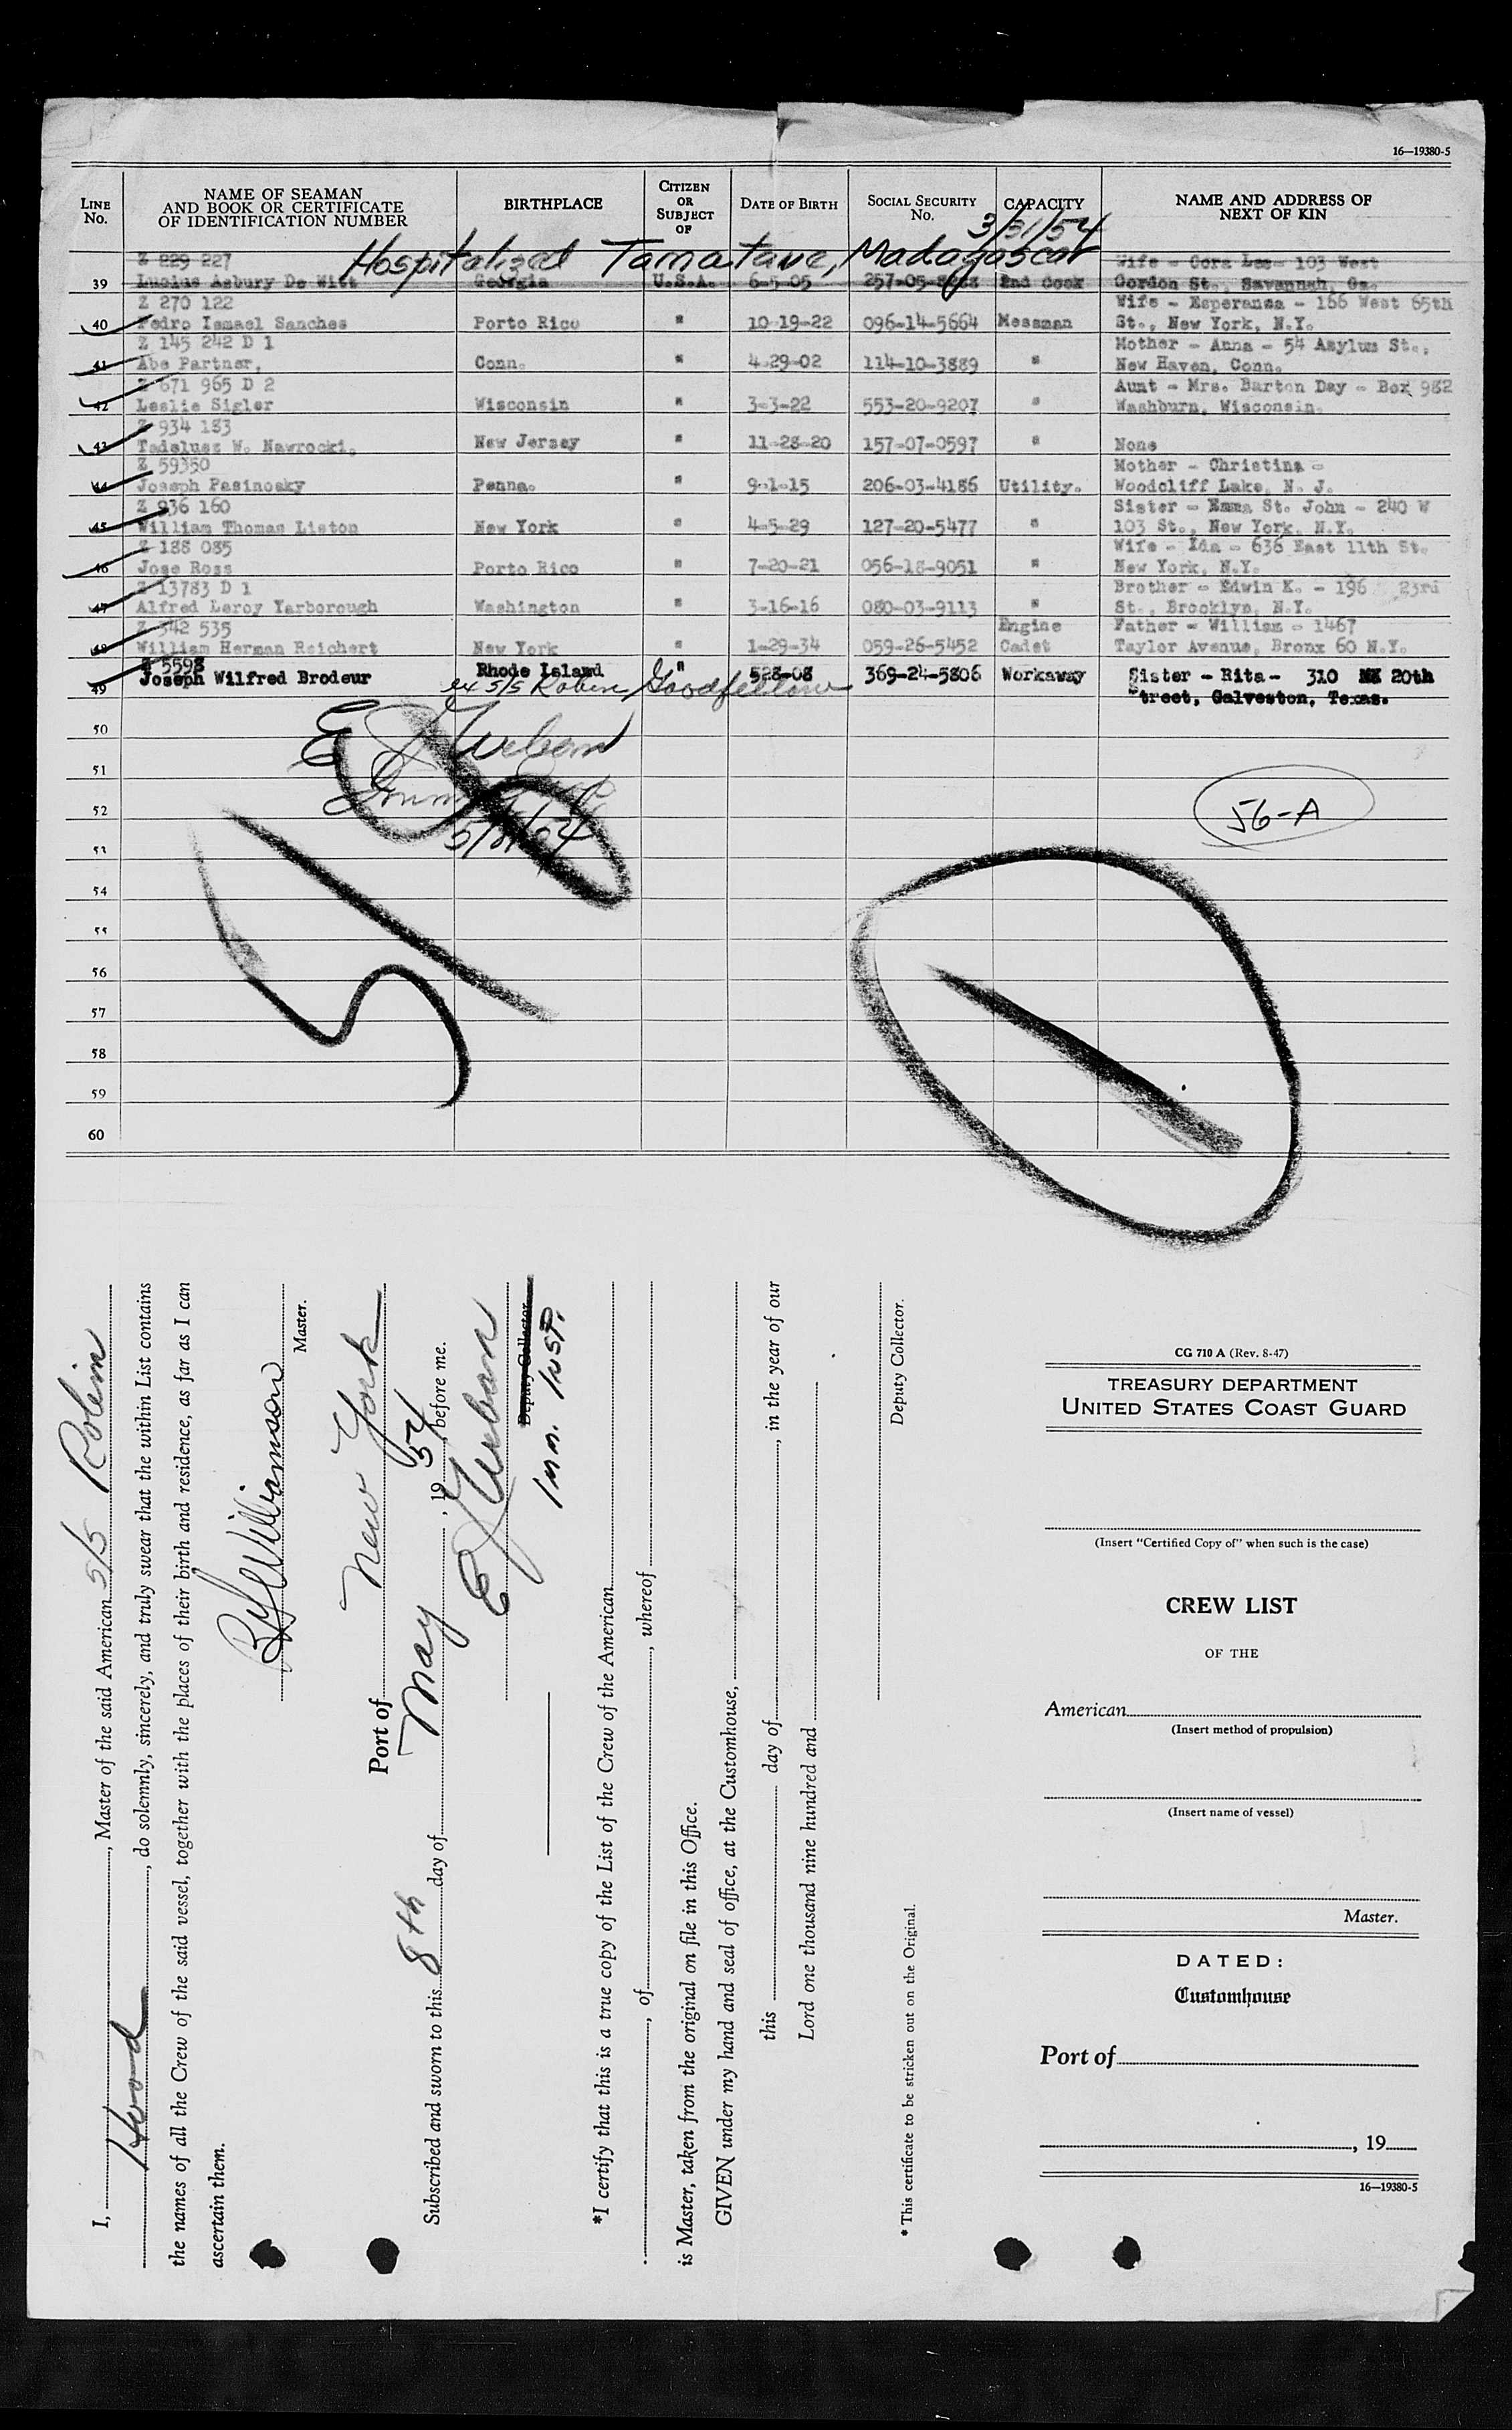 16—19380-5
LINE No. NAME OF SEAMAN AND BOOK OR CERTIFICATE OF IDENTIFICATION NUMBER BIRTHPLACE CITIZEN OR SUBJECT OF DATE OF BIRTH SOCIAL SECURITY No. CAPACITY NAME AND ADDRESS OF NEXT OF KIN
3/31/54
Hospitalized Tamatave, Madagascar
Z 229 227 Wife - Cora Lee- 103 West
39 Lucius Asbury De Witt Georgia U.S.A. 6-5-05 2nd Cook Gordon St., Savannah, Ga.
Z 270 122 Wife - Esperansa - 166 West 65th
40 Pedro Ismael Sanches Porto Rico " 10-19-22 096-14-5664 Messman St., New York, N.Y.
Z 145 242 D 1 Mother - Anna - 54 Asylum St.,
41 Abe Partner, Conn. " 4-29-02 114-10-3889 " New Haven, Conn.
Z 671 965 D 2 Aunt - Mrs. Barton Day - Box 982
42 Leslie Sigler Wisconsin " 3-3-22 553-20-9207 " Washburn, Wisconsin.
Z 934 183
43 Tadeluez W. Nawrocki. New Jersey " 11-28-20 157-07-0597 " None
Z 59350 Mother - Christina -
44 Joseph Pasinosky Penna. " 9-1-15 206-03-4186 Utility. Woodcliff Lake, N. J.
Z 936 160 Sister - Emma St. John - 240 W
45 William Thomas Liston New York " 4-5-29 127-20-5477 " 103 St., New York, N.Y.
Z 188 085 Wife - Ida - 636 East 11th St.
46 Jose Ross Porto Rico " 7-20-21 056-18-9051 " New York, N.Y.
Z 13783 D 1 Brother - Edwin K. - 196 23rd
47 Alfred Leroy Yarborough Washington " 3-16-16 080-03-9113 " St., Brooklyn, N.Y.
Z 342 535 Engine Father - William - 1467
48 William Herman Reichert New York " 1-29-34 059-26-5452 Cadet Taylor Avenue, Bronx 60 N.Y.
Z 5598
49 Joseph Wilfred Brodeur Rhode Island " 528-08 369-24-5806 Workaway Sister - Rita- 310 20th
treet, Galveston, Texas.
ex S/S Robin Goodfellow
50
51
52
53
54
55
56
57
58
59
60
E J Urban
5/8/54
56-A
I, , Master of the said American S/S Robin
Hood , do solemnly, sincerely, and truly swear that the within List contains
the names of all the Crew of the said vessel, together with the places of their birth and residence, as far as I can
ascertain them.
Williamson
Master.
Port of New York
Subscribed and sworn to this 8th day of May , 19 54, before me.
E J Urban
Deputy Collector.
Imm. Insp.
*I certify that this is a true copy of the List of the Crew of the American
, of , whereof
is Master, taken from the original on file in this Office.
GIVEN under my hand and seal of office, at the Customhouse,
this day of , in the year of our
Lord one thousand nine hundred and .
Deputy Collector.
* This certificate to be stricken out on the Original.
CG 710 A (Rev. 8-47)
TREASURY DEPARTMENT
UNITED STATES COAST GUARD
(Insert "Certified Copy of" when such is the case)
CREW LIST
OF THE
American
(Insert method of propulsion)
(Insert name of vessel)
Master.
DATED:
Customhouse
Port of
, 19
16—19380-5